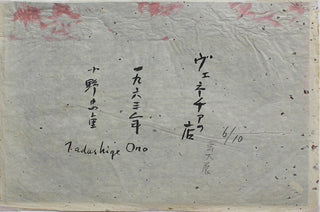 ヴェネーチアの
店
6/10
一九六三年
小野忠重
Tadashige Ono